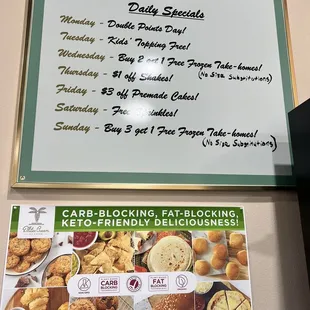 Daily Specials
Monday - Double Points Day!
Tuesday - Kids' Topping Free!
Wednesday - Buy 2 get 1 Free Frozen Take-homes!
(No Size Substitutions)
Thursday - $1 off Shakes!
Friday - $3 off Premade Cakes!
Saturday - Free Sprinkles!
Sunday - Buy 3 get 1 Free Frozen Take-homes!
(No Size Substitutions)
CARB-BLOCKING, FAT-BLOCKING,
KETO-FRIENDLY DELICIOUSNESS!
CARB
BLOCKING
FAT
BLOCKING